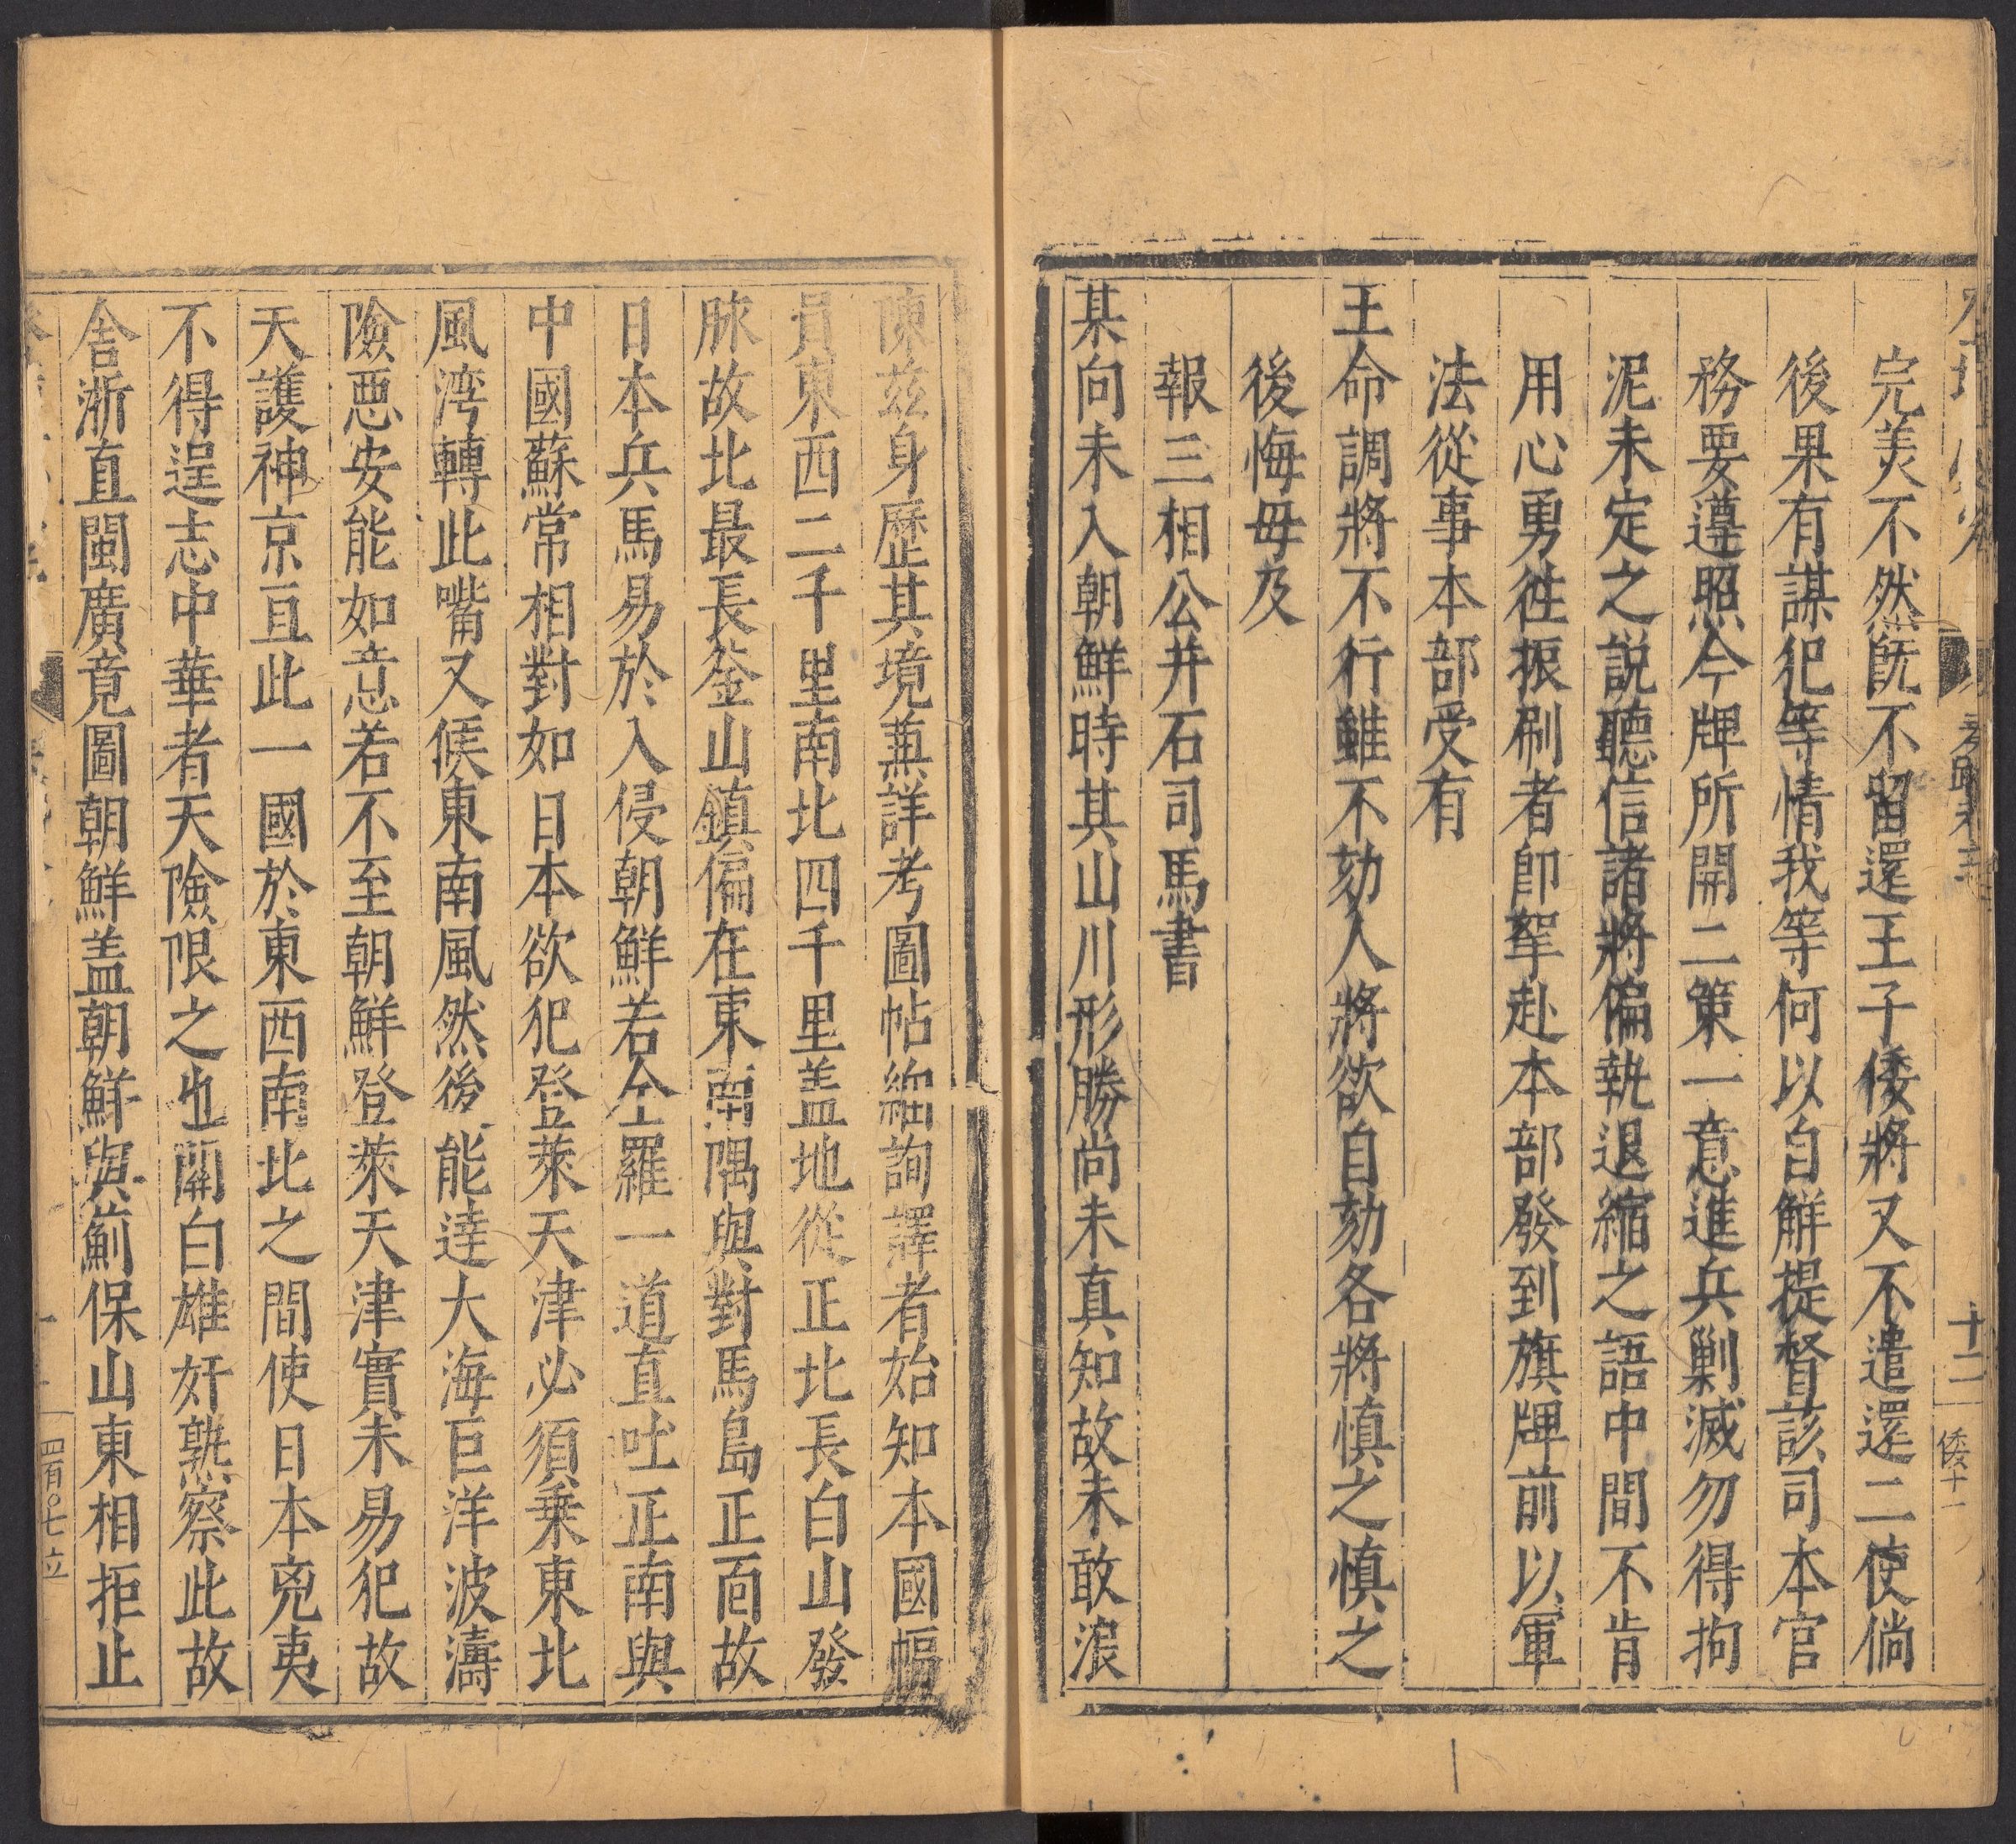 十二
倭十一
完羙不然旣不留還王子倭將又不遣還二使倘
後果有謀犯等情我等何以自觧提督該司本官
務要遵照今牌所開二策一意進兵剿滅勿得拘
泥未定之說聽信諸將偏執退縮之語中間不肯
用心勇徃振刷者卽拏赴本部發到旗牌前以軍
法從事本部受有
王命調將不行雖不劾人將欲自劾各將慎之慎之
後悔毋及
報三相公并石司馬書
某向未入朝鮮時其山川形勝尚未真知故未敢浪
陳兹身歷其境兼詳考圖帖細詢譯者始知本國幅
員東西二千里南北四千里盖地從正北長白山發
脉故北最長釜山鎮偏在東南隅與對馬島正面故
日本兵馬易於入侵朝鮮若全羅一道直吐正南與
中國蘇常相對如日本欲犯登萊天津必須乗東北
風湾轉此嘴又候東南風然後能逹大海巨洋波濤
險惡安能如意若不至朝鮮登萊天津實未易犯故
天護神京亘此一國於東西南北之間使日本兇夷
不得逞志中華者天險限之也關白雄奸熟察此故
舍浙直閩廣竟圖朝鮮盖朝鮮與薊保山東相拒止
四百〇七立